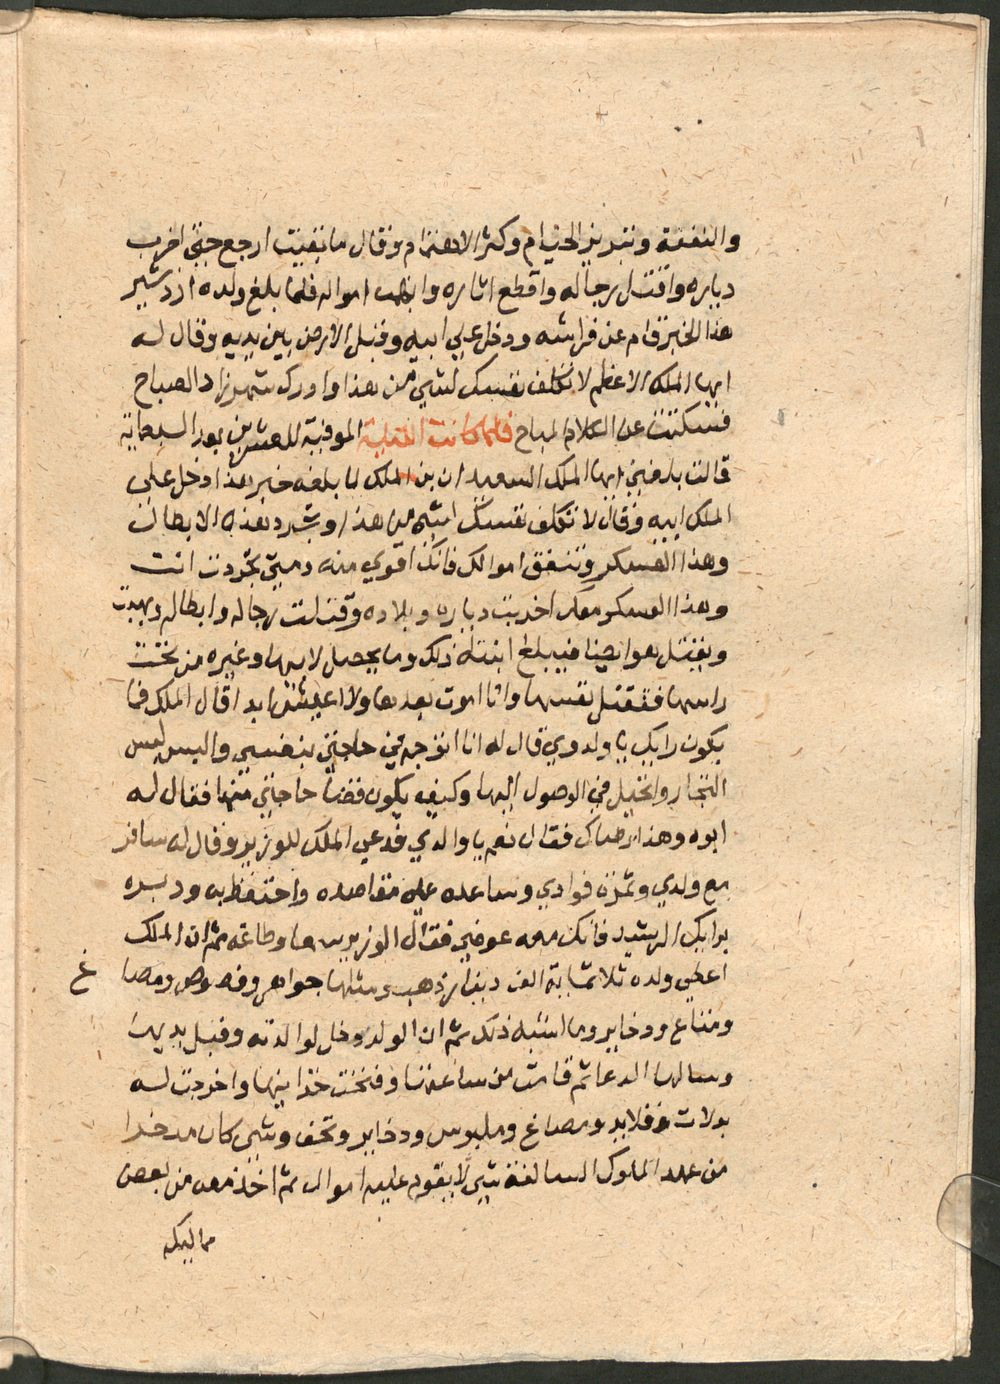 والنفقة وتبريز الخيام وكثر الاهتمام وقال ما بقيت ارجع حتى اخرب
دياره واقتل رجاله واقطع اثاره وانهب امواله فلما بلغ ولده ازدشير
هذا الخبر قام عن فراشه ودخل علي ابيه وقبل الارض بين يديه وقال له
ايها الملك الاعظم لا تكلف نفسك لشي من هذا وادرك شهرزاد الصباح
فسكتت عن الكلام المباح فلما كانت الليلة الموفية للعشرين بعد السبعماية
قالت بلغني ايها الملك السعيد ان بن الملك لما بلغه خبر هذا دخل علي
الملك ابيه وقال لا تكلف نفسك لشي من هذا وتجرد هذه الابطال
وهذا العسكر وتنفق اموالك فانك اقوي منه ومتي تجردت انت
وهذا العسكر معك اخربت دياره وبلاده وقتلت رجاله وابطاله ونهبت
ويقتل هو ايضا فيبلغ ابنته ذلك وما يحصل لابيها وغيره من تحت
راسها فتقتل نفسها وانا اموت بعدها ولا اعيش ابدا قال الملك فما
يكون رايك يا ولدي قال له انا اتوجه في حاجتي بنفسي والبس لبس
التجار واتحيل في الوصول اليها وكيف يكون قضا حاجتي منها فقال له
ابوه وهذا رضاك فقال نعم يا والدي فدعي الملك للوزير وقال له سافر
مع ولدي وثمرة فوادي وساعده علي مقاصده واحتفظ به ودبره
برايك الرشيد فانك معه عوضي فقال الوزير سمعا وطاعة ثم ان الملك
اعطي ولده ثلاثماية الف دينار ذهب ومثلها جواهر وفصوص ومصا غ
ومتاع ودخاير وما اشبه ذلك ثم ان الولد دخل لوالدته وقبل يديها
وسالها الدعا ثم قامت من ساعتها وفتحت خزاينها واخرجت له
بدلات وقلايد ومصاغ وملبوس ودخاير وتحف وشي كان مدخرا
من عهد الملوك السالفة شي لا يقوم عليه اموال ثم اخذ معه من بعض
مماليكه